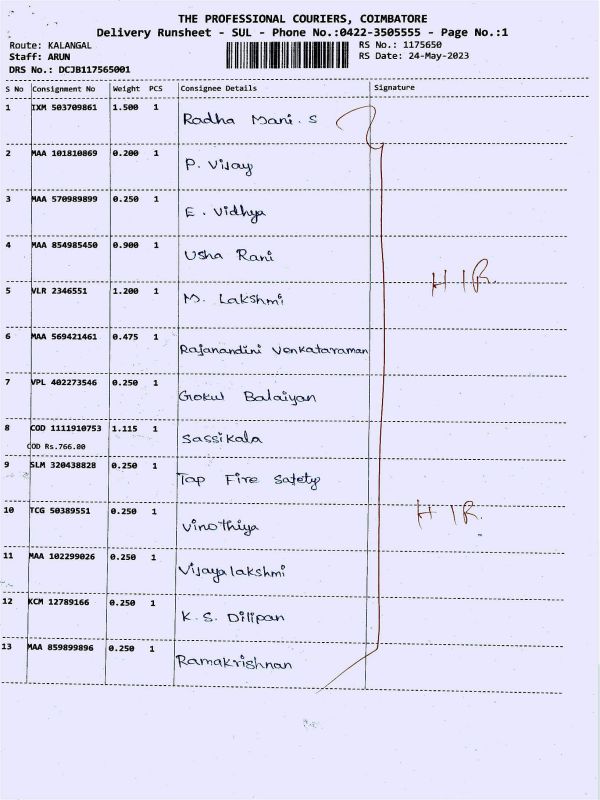 THE PROFESSIONAL COURIERS, COIMBATORE
Delivery Runsheet - SUL - Phone No.:0422-3505555 - Page No.:1
Route: KALANGAL RS No.: 1175650
Staff: ARUN RS Date: 24-May-2023
DRS No.: DCJB117565001
S No Consignment No Weight PCS Consignee Details Signature
1 IXM 503709861 1.500 1 Radha Mani. S
2 MAA 101810869 0.200 1 P. Vijay
3 MAA 570989899 0.250 1 E. Vidhya
4 MAA 854985450 0.900 1 Usha Rani
H IR.
5 VLR 2346551 1.200 1 M. Lakshmi
6 MAA 569421461 0.475 1 Rajanandini Venkataraman
7 VPL 402273546 0.250 1 Gokul Balaiyan
8 COD 1111910753 1.115 1 Sassikala
COD Rs.766.00
9 SLM 320438828 0.250 1 Tap Fire Safety
10 TCG 50389551 0.250 1 Vinothiya
H IR.
11 MAA 102299026 0.250 1 Vijayalakshmi
12 KCM 12789166 0.250 1 K. S. Dilipan
13 MAA 859899896 0.250 1 Ramakrishnan